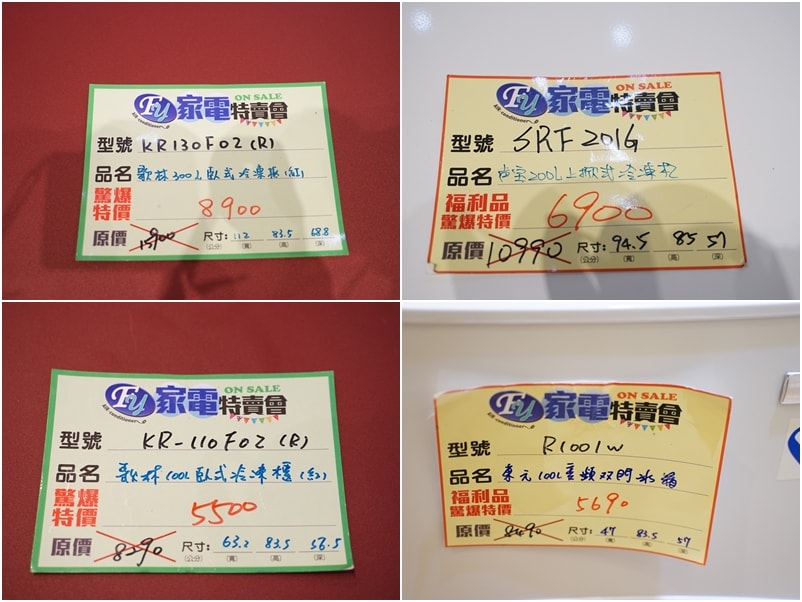 FU 家電特賣會 ON SALE
air conditioner
型號 KR130F02(R)
品名 歌林300L臥式冷凍櫃(紅)
驚爆特價 8900
原價 15900 尺寸:(公分) 112(寬) 83.5(高) 68.8(深)
FU 家電特賣會 ON SALE
air conditioner
型號 SRF201G
品名 声宝200L上掀式冷凍柜
福利品
驚爆特價 6900
原價 10990 尺寸:(公分) 94.5(寬) 85(高) 57(深)
FU 家電特賣會 ON SALE
air conditioner
型號 KR-110F02(R)
品名 歌林100L臥式冷凍櫃(紅)
驚爆特價 5500
原價 8290 尺寸:(公分) 63.2(寬) 83.5(高) 56.5(深)
FU 家電特賣會 ON SALE
air conditioner
型號 R1001W
品名 東元100L双門冰箱
福利品
驚爆特價 5690
原價 8490 尺寸:(公分) 47(寬) 83.5(高) 57(深)